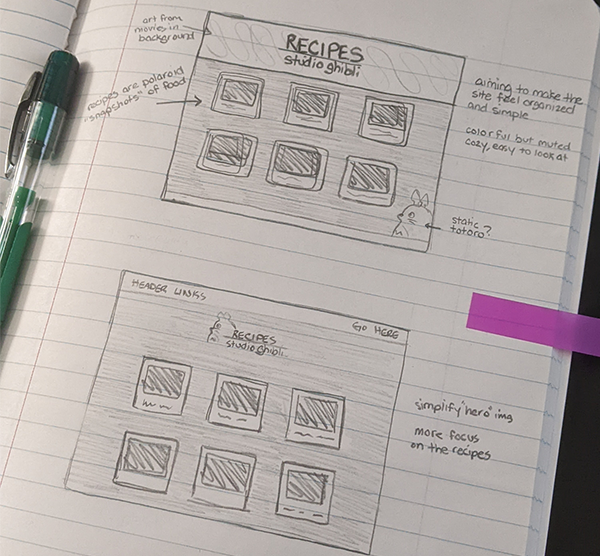 art from
movies in
background
RECIPES
studio ghibli
recipes are polaroid
"snapshots" of food
aiming to make the
site feel organized
and simple
colorful but muted
cozy, easy to look at
static
totoro?
HEADER LINKS
GO HERE
RECIPES
studio ghibli
simplify "hero" img
more focus
on the recipes